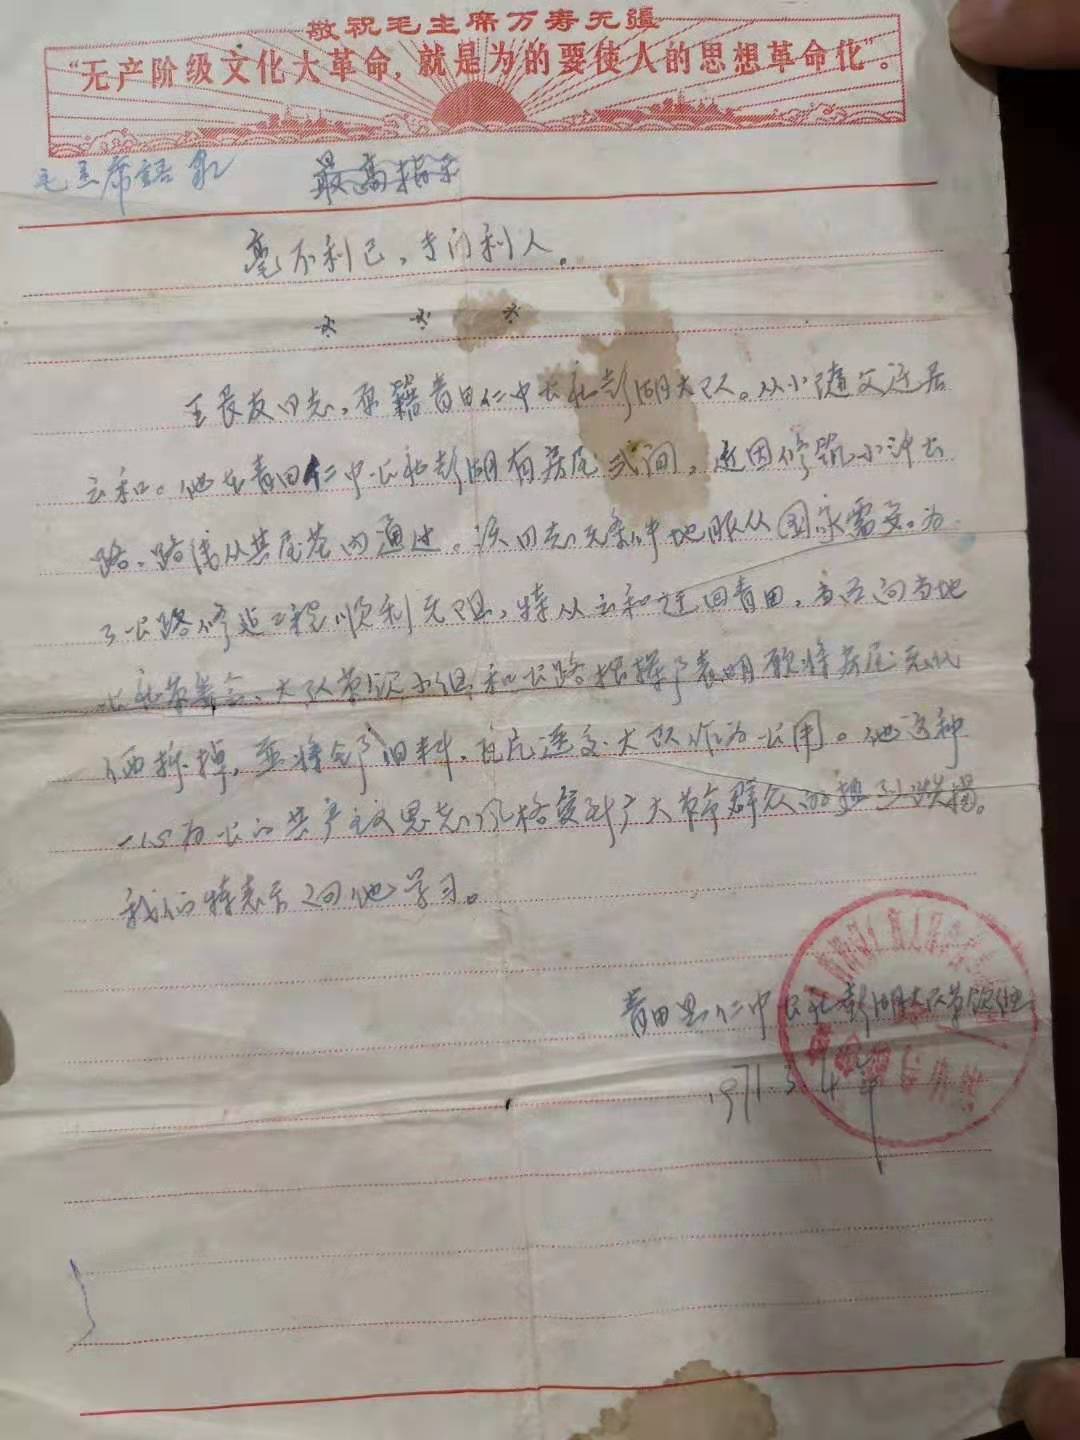 敬祝毛主席万寿无疆
“无产阶级文化大革命，就是为的要使人的思想革命化”。
毛主席語录 最高指示
毫不利己，专门利人。
王长友同志，原籍青田仁中公社彭湖大队。从小随父迁居
云和。他在青田仁中公社彭湖有房屋弍间，近因修筑小
路，路线从其屋基内通过。该同志无条件地服从国家需要。为
了公路修造工程顺利无阻，特从云和迁回青田，直向当地
公社革委会、大队革领小组和公路指挥部表明愿将房屋无代
价拆掉，并将全部旧料、瓦片送交大队作为公用。他这种
一心为公的共产主义思想风格受到广大革命群众的热烈赞扬。
我们特表示向他学习。
青田县仁中公社彭湖大队革领组
1971.3.4